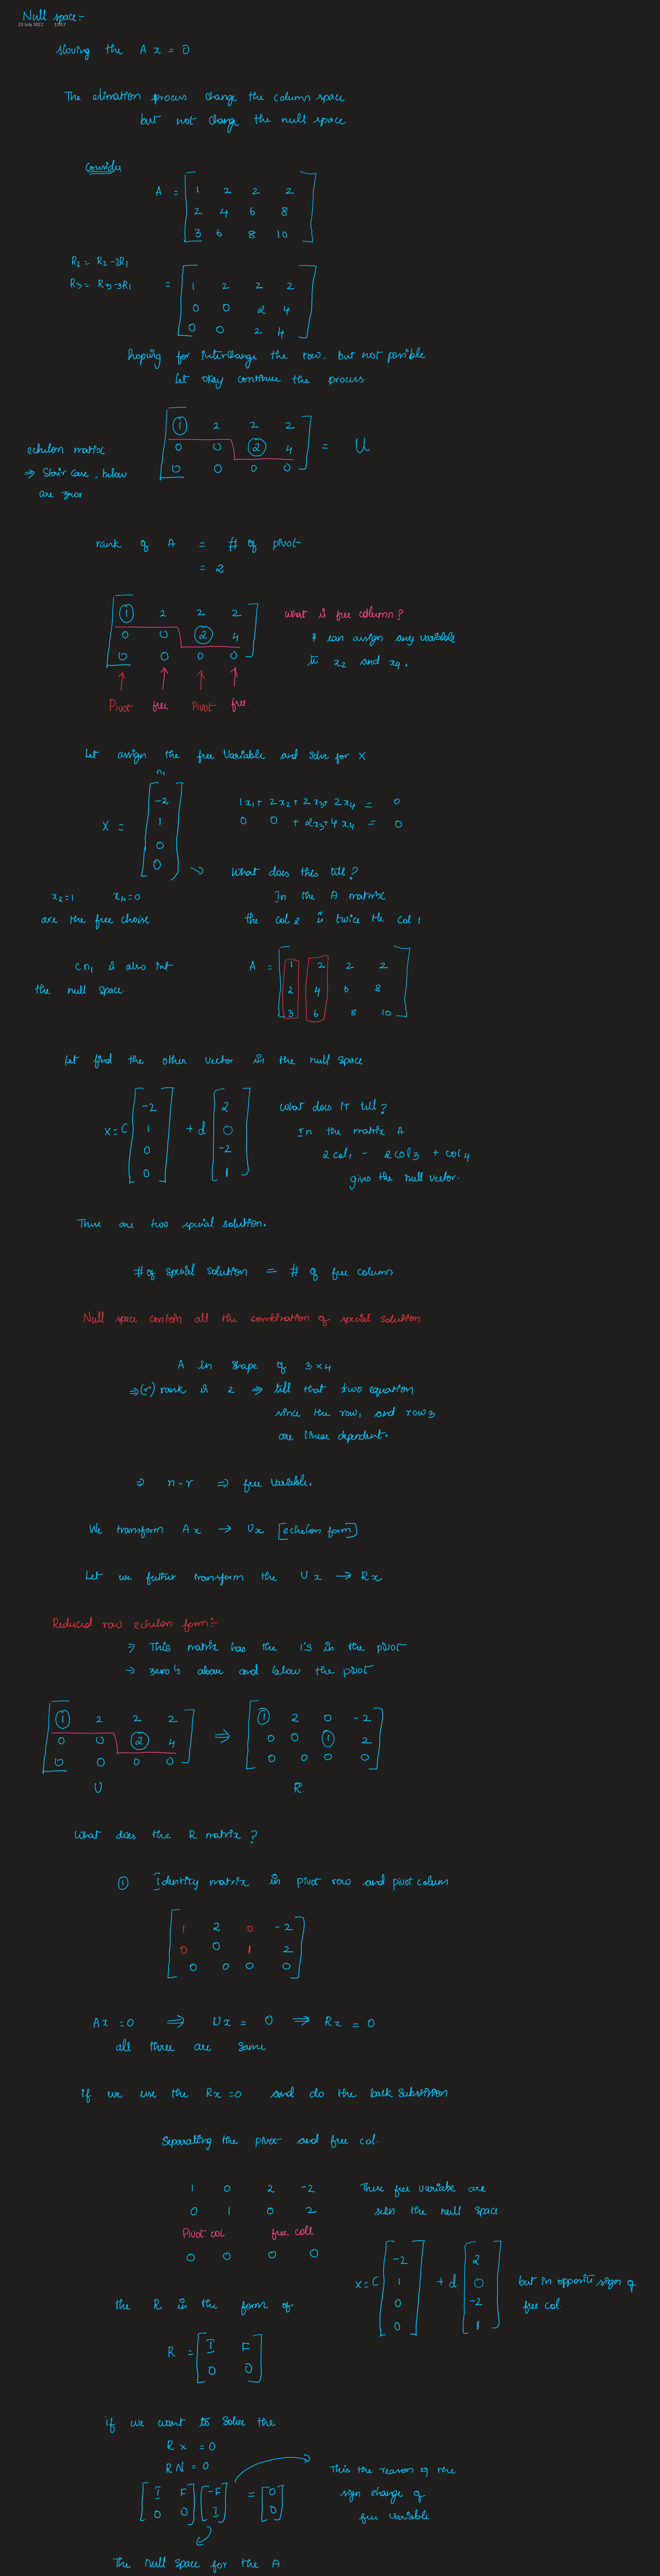 Null space:-
23 July 2022 17:17
sloving the A x = 0
The elimation process change the column space
but not change the null space
Consider
A = [ 1 2 2 2
2 4 6 8
3 6 8 10 ]
R2 = R2 -2R1
R3 = R3 -3R1
= [ 1 2 2 2
0 0 2 4
0 0 2 4 ]
hoping for interchange the row, but not possible
Let okay continue the process
echelon matrix
⇒ Stair case, below
are zeros
[ 1 2 2 2
0 0 2 4
0 0 0 0 ] = U
rank of A = # of pivot
= 2
[ 1 2 2 2
0 0 2 4
0 0 0 0 ]
↑ ↑ ↑ ↑
Pivot free Pivot free
what is free column?
I can assign any variable
to x2 and x4.
Let assign the free Variable and solve for x
n1
x = [ -2
1
0
0 ]
1x1 + 2x2 + 2x3 + 2x4 = 0
0 0 + 2x3 + 4x4 = 0
x2=1 x4=0
are the free choise
→ What does this till?
In the A matrix
the col 2 is twice the col 1
cn1 is also int
the null space
A = [ 1 2 2 2
2 4 6 8
3 6 8 10 ]
Let find the other vector in the null space
x = c [ -2
1
0
0 ] + d [ 2
0
-2
1 ]
What does it till?
In the matrix A
2 col1 - 2 col3 + col4
gives the null vector.
There are two special solution.
# of special solution = # of free column
Null space contain all the combination of special solution.
A in shape of 3x4
⇒ (r) rank is 2 ⇒ till that two equation
since the row1 and row3
are linear dependent.
⇒ n-r ⇒ free variable.
We transform Ax → Ux [echelon form]
Let we further transform the Ux → Rx
Reduced row echelon form:-
→ This matrix has the 1's in the pivot
→ zero's above and below the pivot
[ 1 2 2 2
0 0 2 4
0 0 0 0 ]
U
⇒ [ 1 2 0 -2
0 0 1 2
0 0 0 0 ]
R
What does the R matrix?
① Identity matrix in pivot row and pivot column
[ 1 2 0 -2
0 0 1 2
0 0 0 0 ]
Ax = 0 ⇒ Ux = 0 ⇒ Rx = 0
all three are same
if we use the Rx = 0 and do the back
Separating the pivot and free col.
1 0 2 -2
0 1 0 2
Pivot col free coll
0 0 0 0
These free variable are
seen the null space
x = c [ -2
1
0
0 ] + d [ 2
0
-2
1 ]
but in opposite sign of
free col.
the R in the form of
R = [ I F
0 0 ]
if we want to solve the
Rx = 0
RN = 0
[ I F
0 0 ] [ -F
I ] = [ 0
0 ]
This the reason of the
sign change of
free variable
The null space for the A.